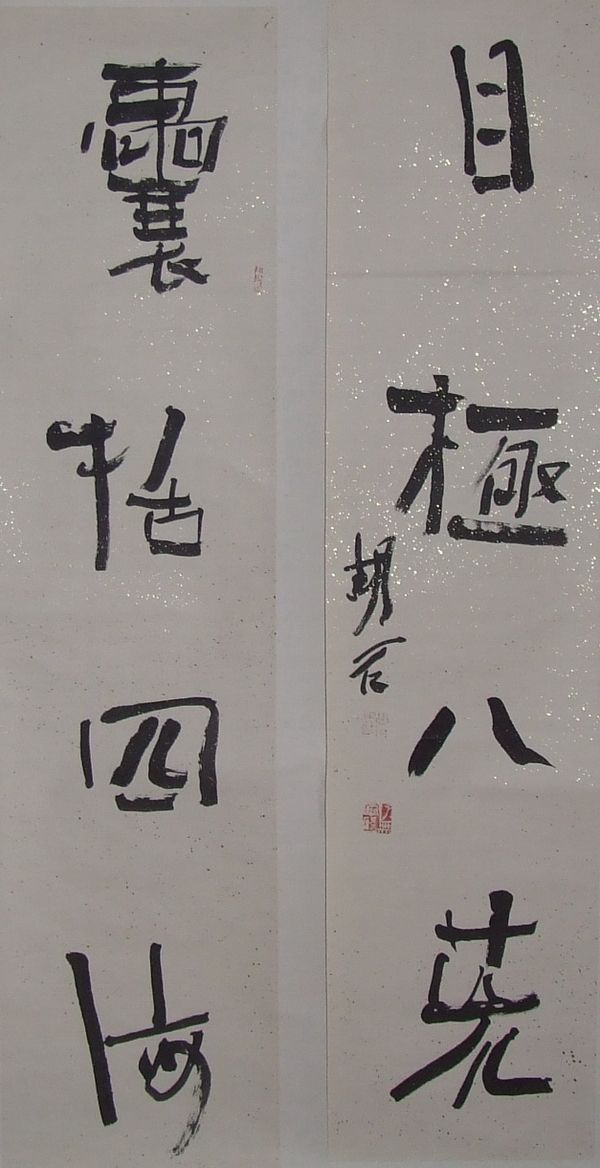 目極八荒
胡
囊括四海